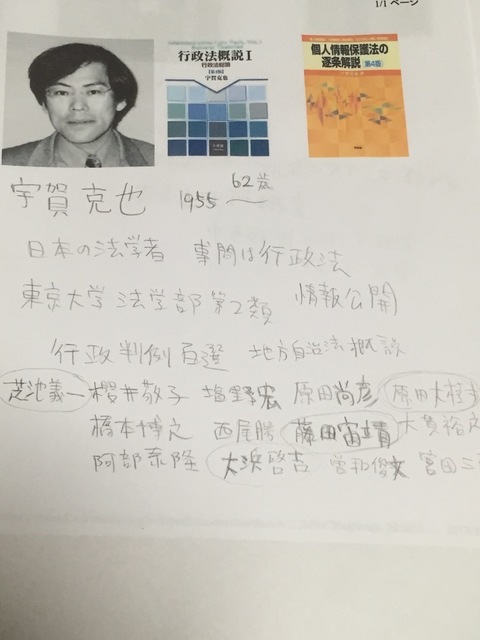 1/1 ページ
行政法概説Ⅰ
行政法総論
宇賀克也
個人情報保護法の
逐条解説
第4版
宇賀克也 1955 62歳
日本の法学者 専門は行政法
東京大学 法学部 第2類 情報公開
行政判例百選 地方自治法概説
芝池義一 櫻井敬子 塩野宏 原田尚彦 原田大樹
橋本博之 西尾勝 藤田宙靖 大貫裕之
阿部泰隆 大浜啓吉 曽和俊文 宮田三